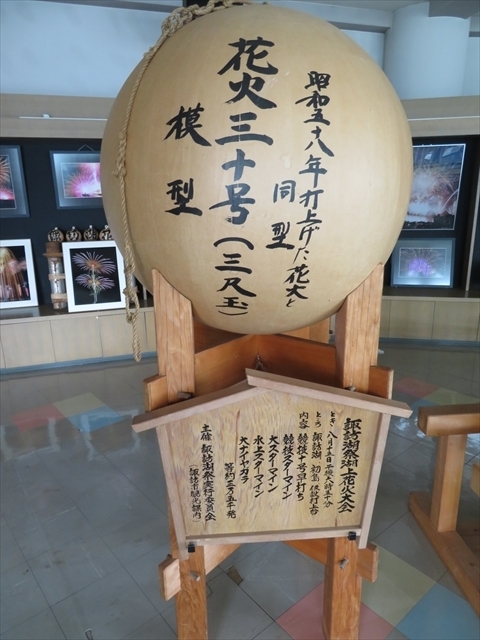 昭和五十八年打上げた花火と
同型
花火三十号(三尺玉)
模型
諏訪湖祭湖上花火大会
とき 八月十五日午後六時五十分
ところ 諏訪湖 初島 仮設打上台
内容 競技十号早打ち
競技スターマイン
大スターマイン
水上スターマイン
大ナイヤガラ
等約二万五千発
主催 諏訪湖祭実行委員会
(諏訪市観光課内)